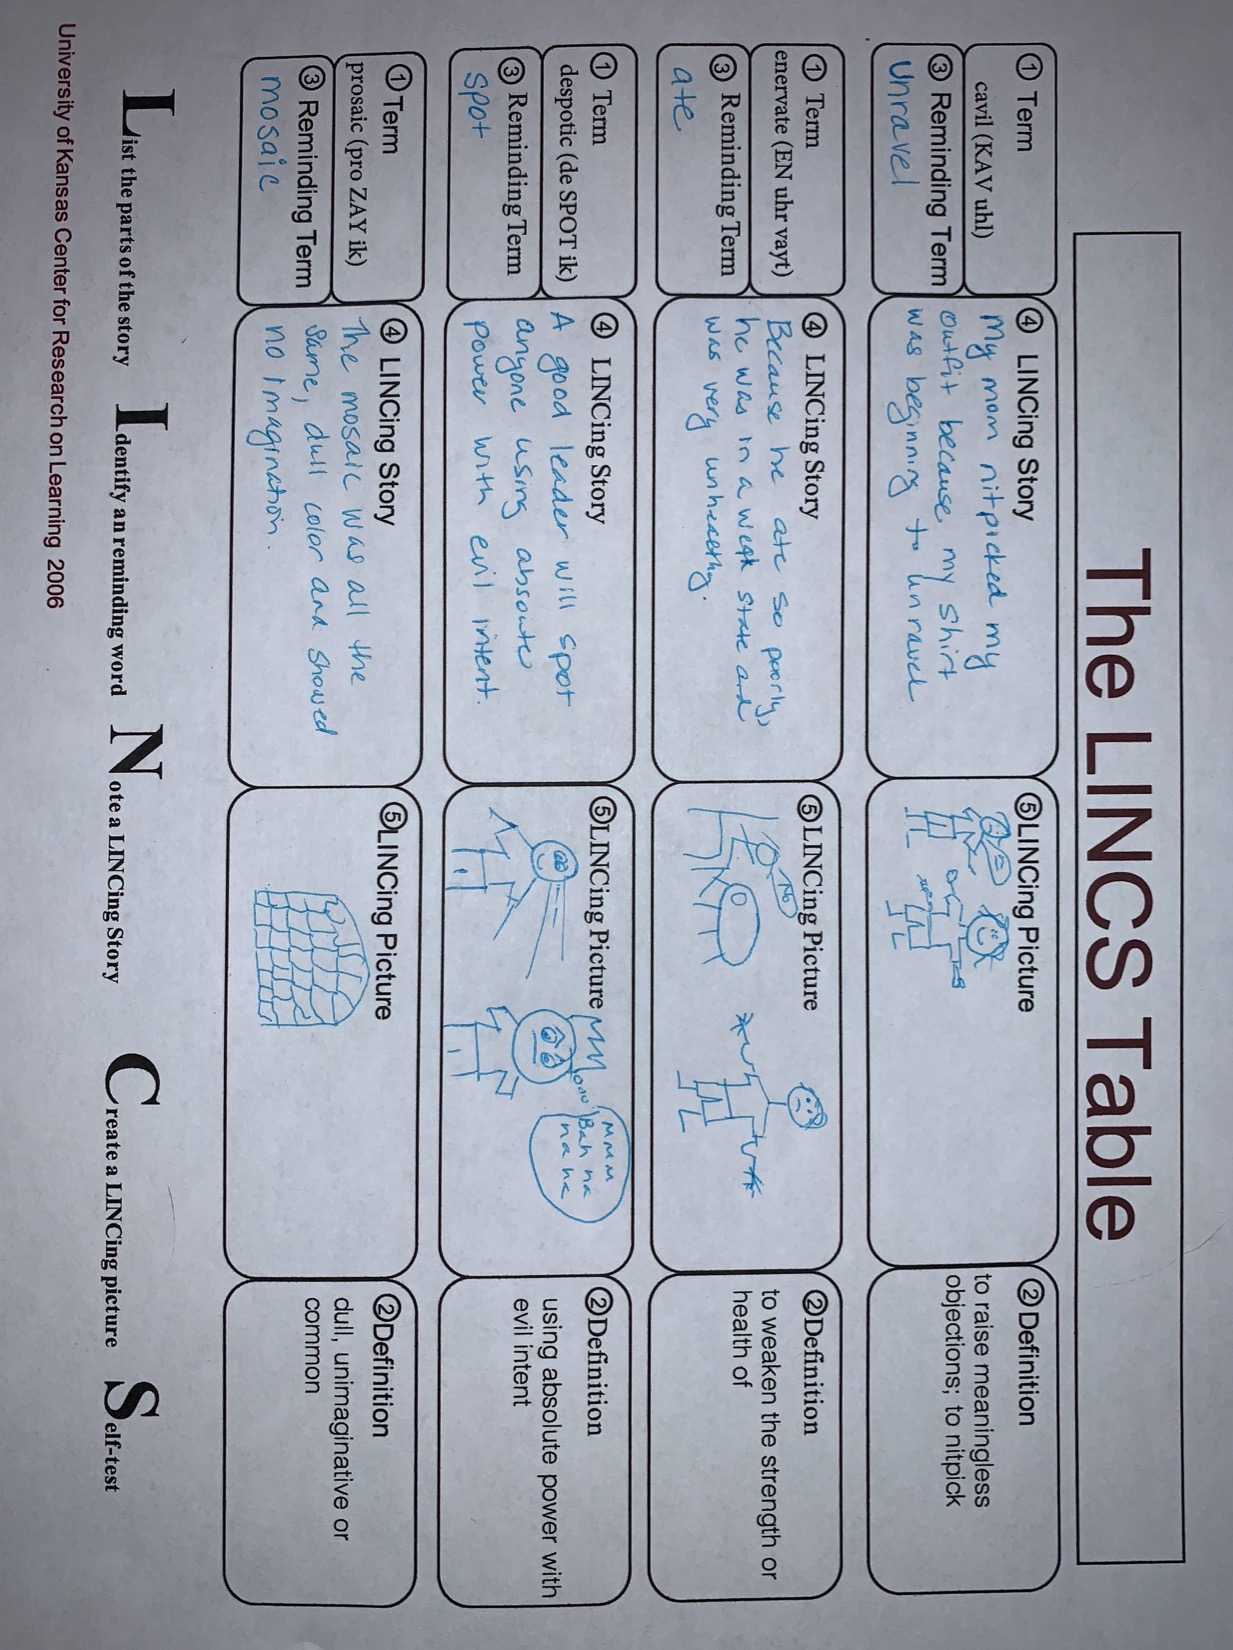 The LINCS Table
① Term
cavil (KAV uhl)
③ Reminding Term
Unravel
④ LINCing Story
My mom nitpicked my
outfit because my shirt
was beginning to unravel
⑤LINCing Picture
② Definition
to raise meaningless
objections; to nitpick
① Term
enervate (EN uhr vayt)
③ Reminding Term
ate
④ LINCing Story
Because he ate so poorly,
he was in a weak state and
was very unhealthy.
⑤LINCing Picture
No
②Definition
to weaken the strength or
health of
① Term
despotic (de SPOT ik)
③ Reminding Term
Spot
④ LINCing Story
A good leader will spot
anyone using absoute
power with evil intent.
⑤LINCing Picture
MMM
Bah na
na ha
②Definition
using absolute power with
evil intent
①Term
prosaic (pro ZAY ik)
③ Reminding Term
mosaic
④ LINCing Story
The mosaic was all the
same, dull color and showed
no imagination.
⑤LINCing Picture
②Definition
dull, unimaginative or
common
List the parts of the story Identify an reminding word Note a LINCing Story Create a LINCing picture Self-test
University of Kansas Center for Research on Learning 2006